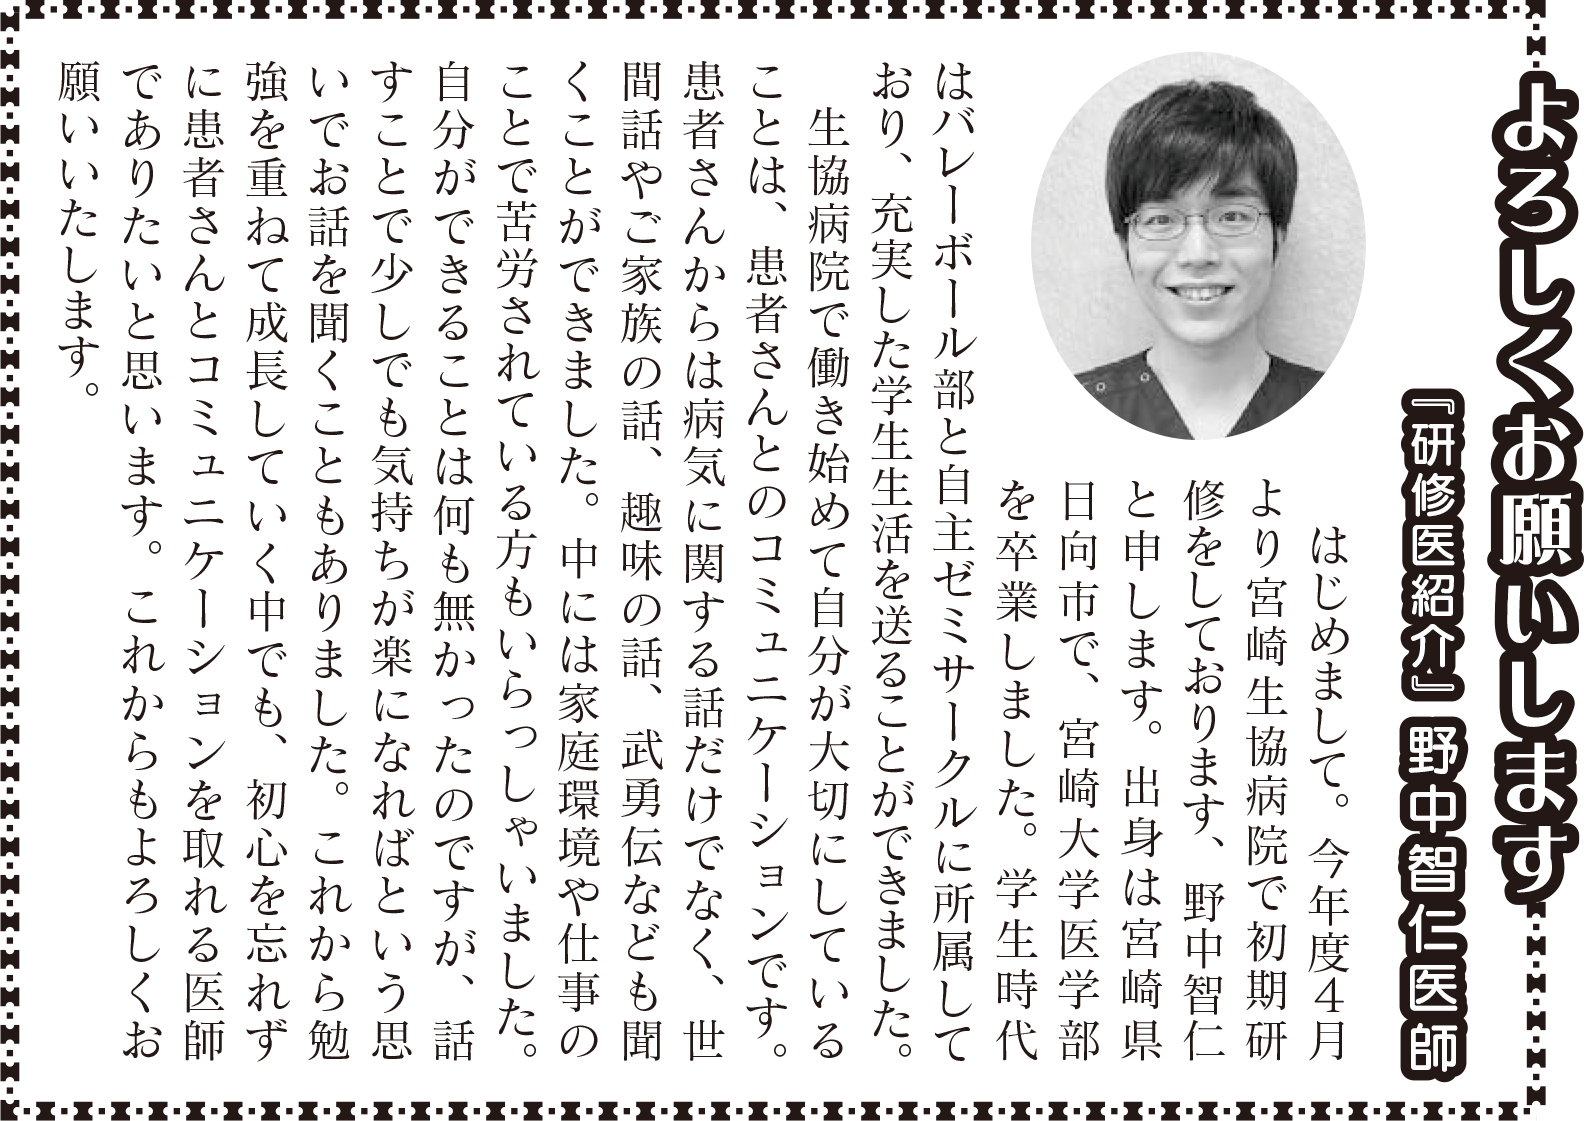 よろしくお願いします
『研修医紹介』野中智仁医師
はじめまして。今年度４月
より宮崎生協病院で初期研
修をしております、野中智仁
と申します。出身は宮崎県
日向市で、宮崎大学医学部
を卒業しました。学生時代
はバレーボール部と自主ゼミサークルに所属して
おり、充実した学生生活を送ることができました。
生協病院で働き始めて自分が大切にしている
ことは、患者さんとのコミュニケーションです。
患者さんからは病気に関する話だけでなく、世
間話やご家族の話、趣味の話、武勇伝なども聞
くことができました。中には家庭環境や仕事の
ことで苦労されている方もいらっしゃいました。
自分ができることは何も無かったのですが、話
すことで少しでも気持ちが楽になればという思
いでお話を聞くこともありました。これから勉
強を重ねて成長していく中でも、初心を忘れず
に患者さんとコミュニケーションを取れる医師
でありたいと思います。これからもよろしくお
願いいたします。